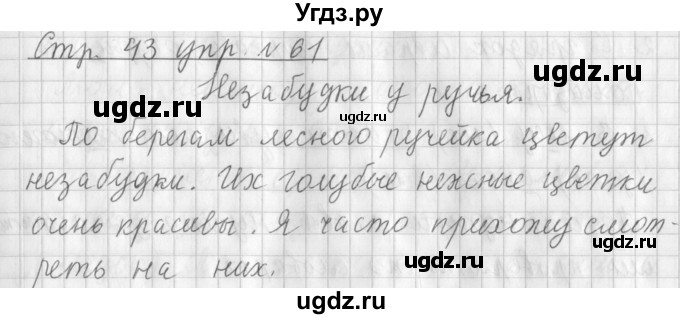 Угдз.ру
Стр. 43 упр. №61
ugdz.ru ugdz.ru
Незабудки у ручья.
ugdz.ru
По берегам лесного ручейка цветут
ugdz.ru ugdz.ru
незабудки. Их голубые нежные цветки
ugdz.ru
очень красивы. Я часто прихожу смот-
ugdz.ru ugdz.ru
реть на них.
ugdz.ru